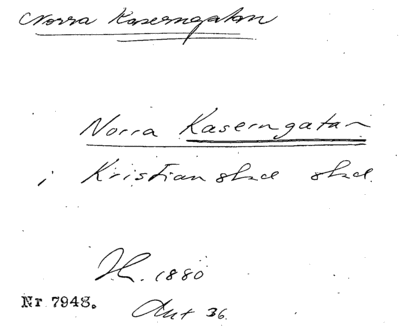 Norra Kaserngatan
Norra Kaserngatan
i Kristianstad stad
1880
Nr 7948.
36.